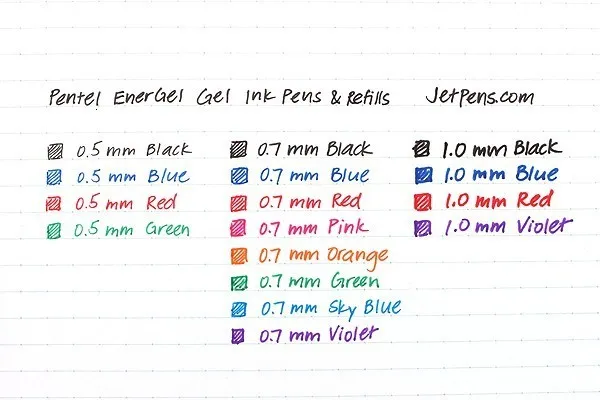 Pentel EnerGel Gel Ink Pens & Refills JetPens.com
0.5 mm Black 0.7 mm Black 1.0 mm Black
0.5 mm Blue 0.7 mm Blue 1.0 mm Blue
0.5 mm Red 0.7 mm Red 1.0 mm Red
0.5 mm Green 0.7 mm Pink 1.0 mm Violet
0.7 mm Orange
0.7 mm Green
0.7 mm Sky Blue
0.7 mm Violet